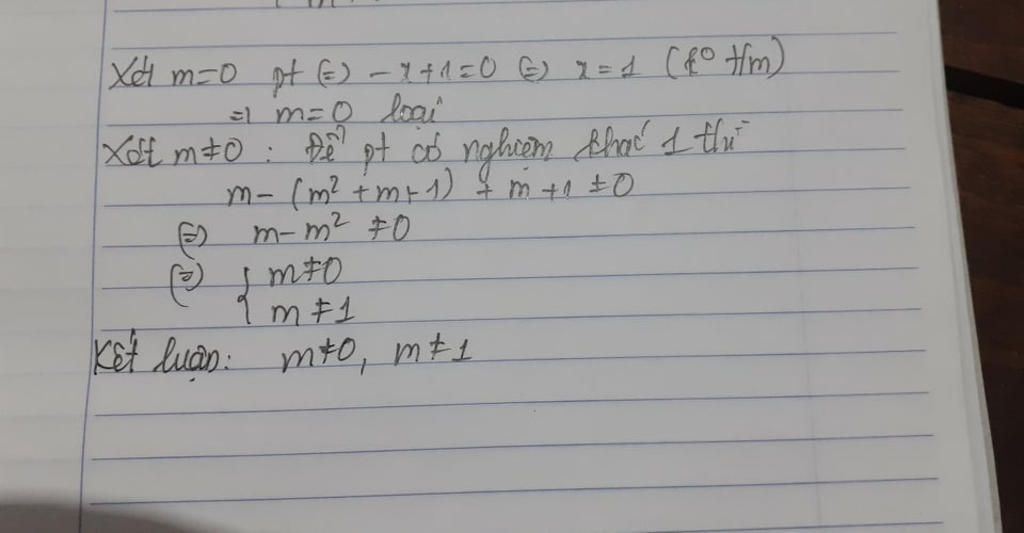 Xét m=0 pt (=) -x+1=0 (=) x=1 (k° t/m)
=) m=0 loại
Xét m≠0: Để pt có nghiệm khác 1 thì
m-(m²+m+1)+m+1≠0
(=) m-m²≠0
(=) { m≠0
m≠1
Kết luận: m≠0, m≠1